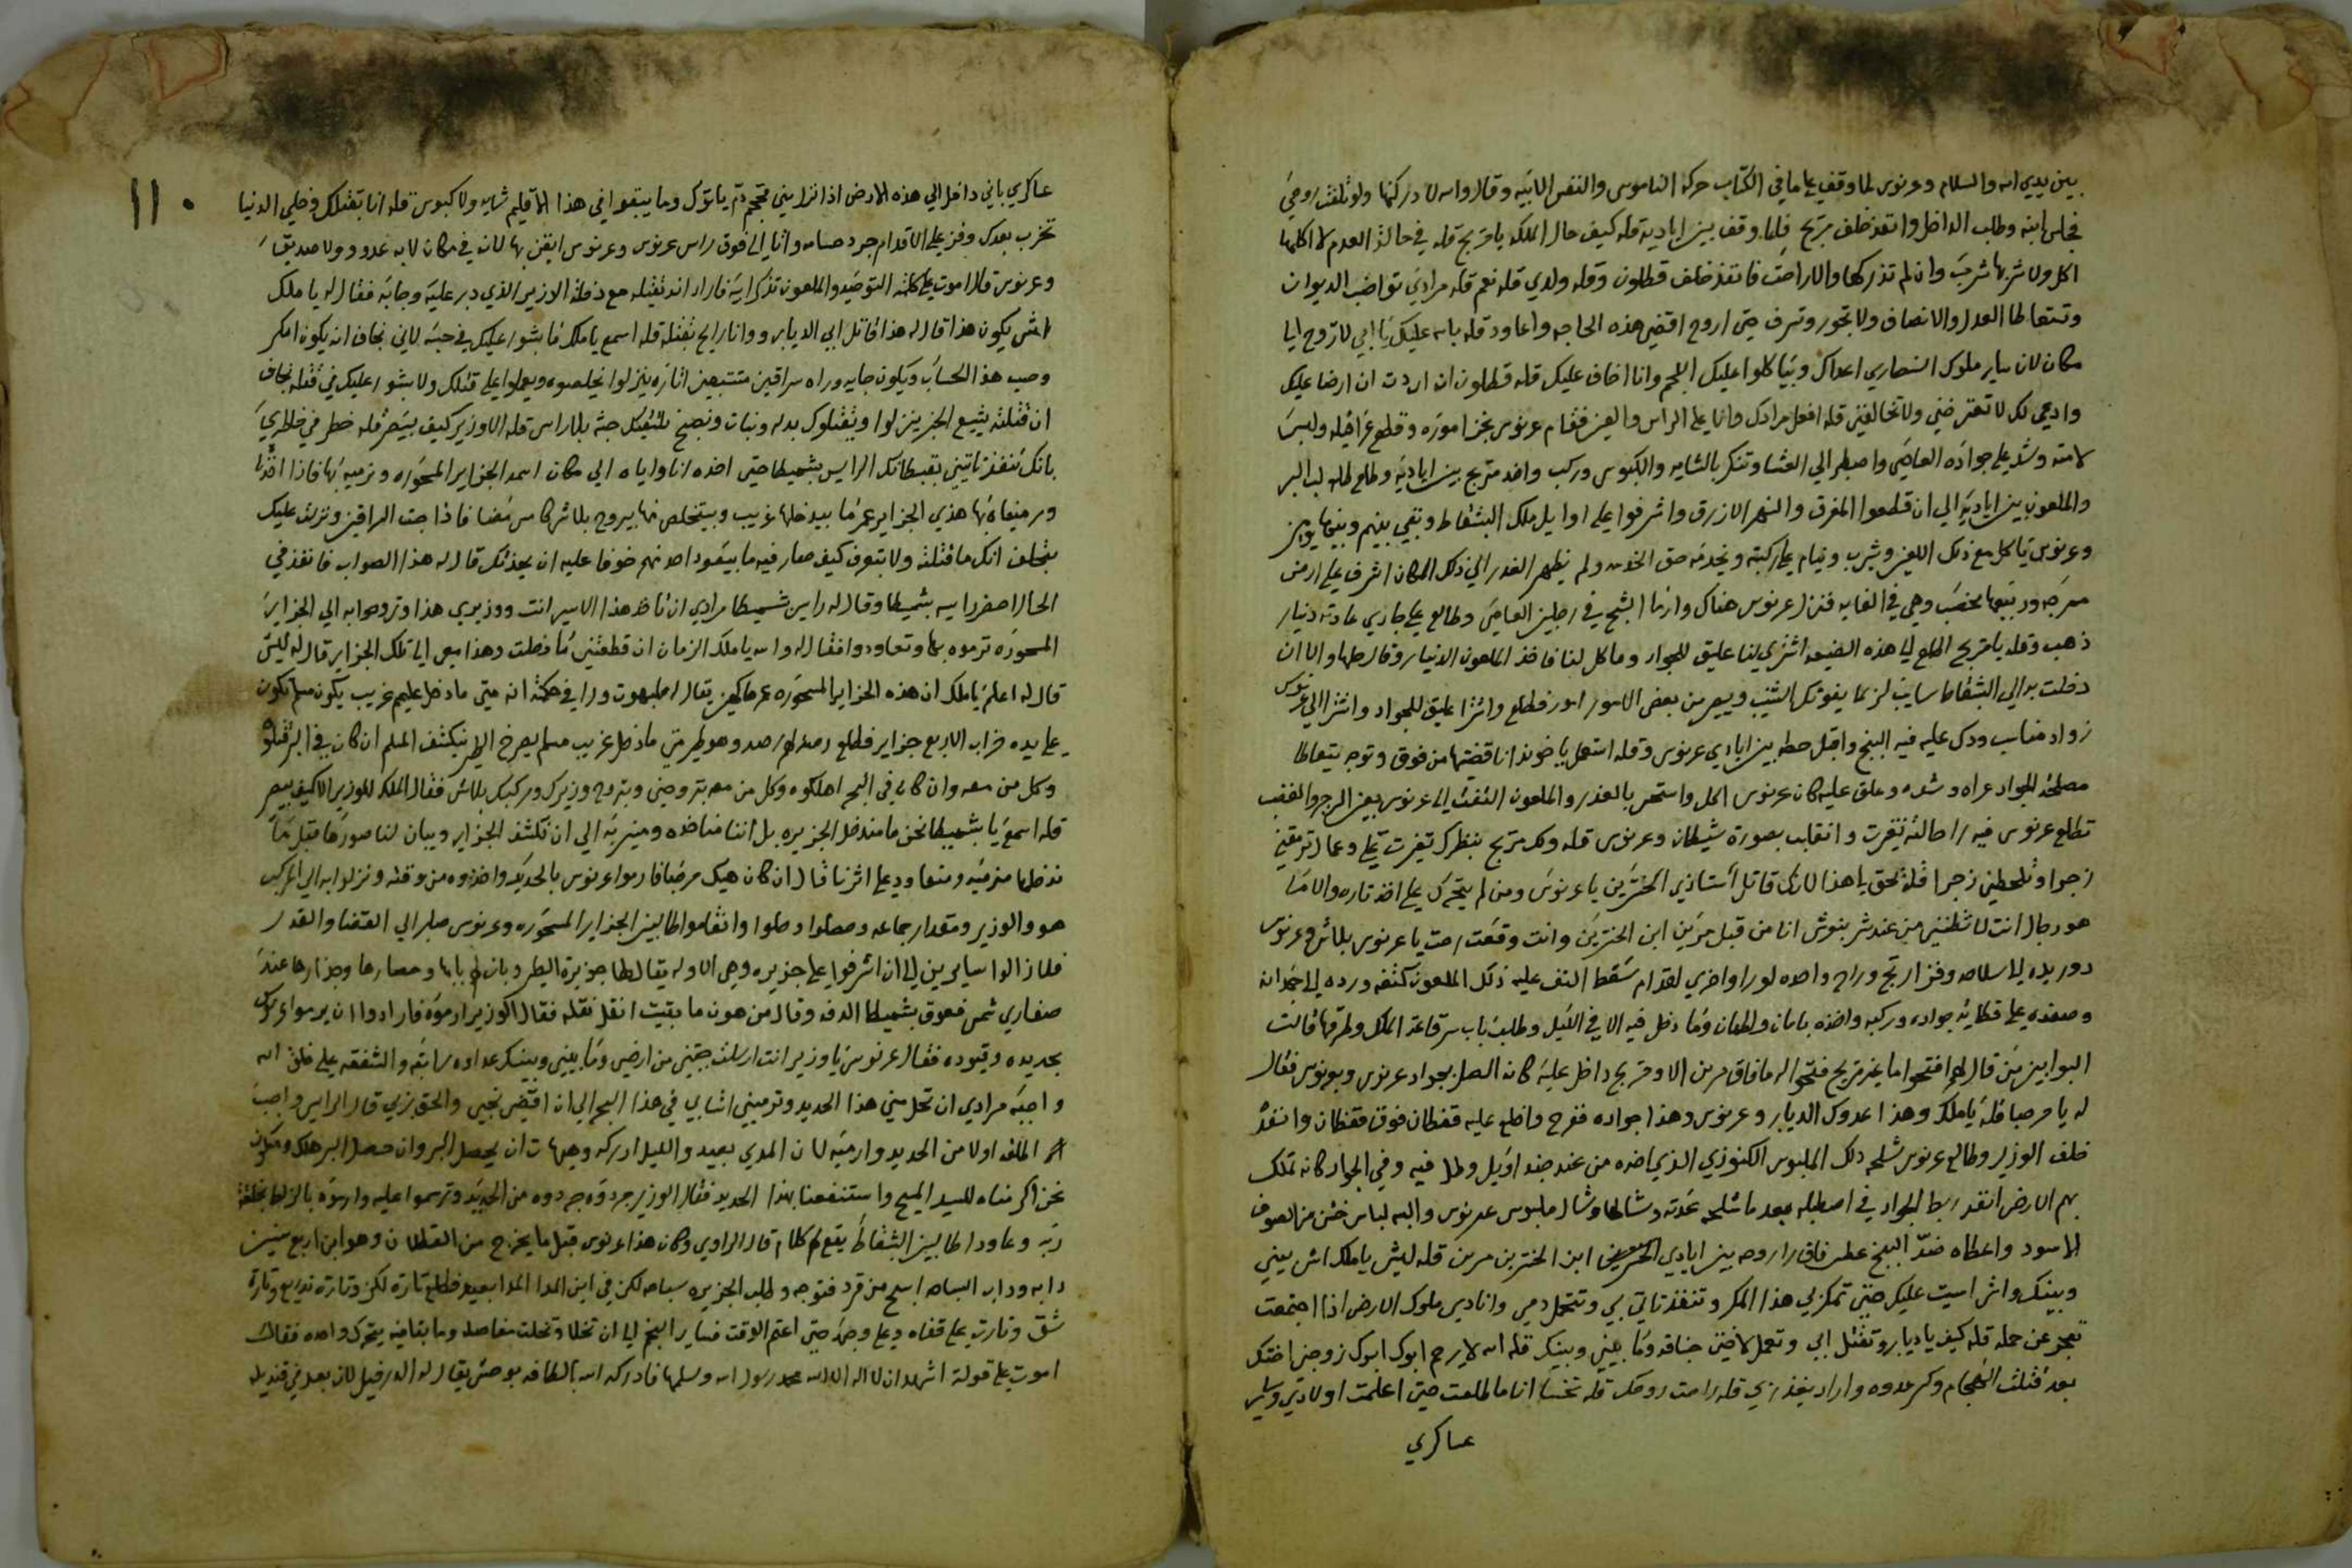 بين يديي الله والسلام وعرنوس لما وقف على ما في الكتاب حركة الناموس والنفس الابيه وقال والله لا دركنها ولو تلفت روحي
فجلس ابنه وطلب الداخل وانقد خلف مريح فلما وقف بين اياديه قله كيف حال الملكه يا مريح قله في حالة العدم لا اكلها
اكل ولا شربها شرب وان لم تدركها والا راحت فانفذ خلف قطلون وقله ولدي قله نعم قله مرادي تواضب الديوان
وتتعاطا العدل والانصاف ولا تجور وتسرف حتى اروح اقضي هذه الحاجه واعاود قله بالله عليك يا ابي لا تروح الى
مكان لان ساير ملوك النصاري اعداك وبياكلوا عليك اللجم وانا اخاف عليك قله قطلون ان اردت ان ارضا عليك
وادعي لك لا تعترضني ولا تخالفني قله افعل مرادك وانا على الراس والعين فقام عرنوس نجز اموره وقلع غراقيله ولبس
لامته وشد على جواده العاصي واصطبر الي العشا وتنكر بالشايه والكبوس وركب واخد مريح بين اياديه وطلع طلب البر
والملعون بين اياديه الي ان قطعوا المفرق والنهر الازرق واشرفوا على اوايل ملك البشقاط وبقي بينهم وبينها يومين
وعرنوس ياكل مع ذلك اللعين ويشرب وينام على ركبته ويخدمه حق الخدمه ولم يظهر الغدر الي ذلك المكان اشرف على ارض
مرجه وربيعها مخصب وهي في الغايه فنزل عرنوس هناك وارما الشبح في رجلين العاصي وطالع على جاري عادته دينار
ذهب وقله يا مريح اطلع الى هذه الضيعه اشتري لنا عليق للجواد وماكل لنا فاخذ الملعون الدينار وقال طلها والا ان
دخلت به الي البشقاط سايب لربما يفوتك الشيب ويصير من بعض الامور امور فطلع واشترا عليق للجواد واشترا الي عرنوس
زواد مناسب ودك عليه فيه البنج واقبل حطه بين ايادي عرنوس وقله استعمل يا خوند انا قضيتها من فوق وتوجه يتعاطا
مصلحة الجواد عراه وشده وعلق عليه كان عرنوس اكل واستحس بالغدر والملعون التفت الى عرنوس بعين الزجر والغضب
تطلع عرنوس فيه راحالته تغيرت وانقلب بصورة شيطان وعرنوس قله ولك مريح بنظرك تغيرت على وعمال ترمقني
زجرا وتلحظني زجرا قله بحق يا هذا لانك قاتل استاذي الخنترين يا عرنوس ومن لم يتحرك على اخذ تاره والا ما
هو رجال انت لا تظنني من عند شربنوش انا من قبل مرين ابن الخنترين وانت وقعت رحت يا عرنوس بلاش وعرنوس
دور يده الى سلاحه وفز ارتج وراح واحده لورا واخري لقدام سقط التف عليه ذلك الملعون كتفه ورده الى جدانه
وصفده على قطاية جواده وركبه واخذه بامان واطمان وما دخل فيه الا في الليل وطلب باب سر قاعة الملك وطرقها قالت
البوابين من قال لهم افتحوا ما غير مريح فتحوا له ما فاق مرين الا ومريح داخل عليه كانه الصل بجواد عرنوس وبعرنوس فقال
له يا مرحبا قله يا ملك وهذا عدوك الديابر وعرنوس وهذا جواده ففرح واخلع عليه قفطان فوق قفطان وانقد
خلف الوزير وطالع عرنوس شلحه ذلك الملبوس الكنوزي الذي اخده من عند جند اويل وطل فيه وفي الجواد كانه تملك
بهم الارض انقد ربط الجواد في اصطبله بعد ما شلحه عدته وشالها وشال ملبوس عرنوس والبسه لباس خشن من الصوف
الاسود واعطاه ضد البنج عطس فاق را روحه بين ايادي ابن الخنترين مرين قله ليش يا ملك اش بيني
وبينك واش اسيت عليك حتى تمكر لي هذا المكر وتنفذ تاتي بي وتتحمل دمي وانا ديس ملوك الارض اذا اجتمعت
تعجز عن حمله قله كيف يا ديابرو تقتل ابي وتعمل لاختي خناقه وما بيني وبينك قله الله لا يرحم ابوك ابوك زوجني اختك
بعد قتلت القمجام وكسر عدوه واراد يغدر بي قله راحت روحك قله تخسا انا ما طلعت حتى اعلمت اولادي وساير
عساكري
١١٠
عساكري باني داخل الي هذه الارض اذا نزل بيني محجم دم ياتوك وما يبقوا في هذا الاقليم شايه ولا كبوس قله انا بقتلك وخلي الدنيا
تخرب بعدك وفز على الاقدام جرد حسامه واتا الي فوق راس عرنوس وعرنوس ايقن بها لانه في مكان لا به عدو ولا صديق
وعرنوس قال اموت على كلمة التوحيد والملعون تذكر ابيه فاراد انه يقتله مع دخلة الوزير الذي دبر عليه وجابه فقال له يا ملك
اش يكون هذا قال له هذا قاتل ابي الديابرو وانا رايح بقتله قله اسمع يا ملك ما بشور عليك في حبسه لاني بخاف ان يكون امكر
وحسب هذا الحساب ويكون جايه وراه سراقين متتبعين اثاره ينزلوا يخلصوه ويعملوا على قتلك ولا بشور عليك في قتله بخاف
ان قتلته يشيع الخبر ينزلوا ويقتلوك بدله ونبات ونصبح نلتقيك جثه بلا راس قله الاوزير كيف بيصير قله خطر في خاطري
بانك تنفذ تاتيني بقبطانك الرايس بشميطا حتى اخده انا واياه الي مكان اسمه الجزاير المسحوره ونرميه بها فاذا اخذنا
ورميناه بها هذي الجزاير عمرنا بيدخلها غريب وبيتخلص منها بيروح بلاش كاس مضا فاذا اجت السراقين ونزلت عليك
بتحلف انك ما قتلته ولا بتعرف كيف صار فيه ما بيعود احد منهم خوفا عليه ان يعدمك قال له هذا الصواب فانفذ في
الحال احضر رايسه بشميطا وقال له رايس شميطا مرادي ان تاخد هذا الاسير انت ووزيري هذا وتروحوا به الي الجزاير
المسحوره ترموه بها وتعاودوا فقال له والله يا ملك الزمان ان قطعتني ما دخلت وهذا معي الى تلك الجزاير قال له ليش
قال له اعلم يا ملك ان هذه الجزاير المسحوره عمرها كهين يقال له صلبهوت ورا في حكمته انه متى ما دخل عليهم غريب يكون مسلم تكون
على يده خراب الاربع جزاير فطلع رصد لهم رصد وهو طير متى ما دخل غريب مسلم يصرخ الطير بنكشف المسلم ان كان في البر قتلوه
وكل من معه وان كان في البحر اهلكوه وكل من معه بتروح مني وبتروح وزيرك ومركبك بلاش فقال الملك للوزير الا كيف بيصير
قله اسمع يا بشميطا نحن ما مندخل الجزيره بل اننا مناخده ومنسر به الي ان تكشف الجزاير وبيان لنا صورها قبل ما
ندخلها منرميه ومنعاود على اثرنا قال ان كان هيك مرحبا فارموا عرنوس بالحديد واخذوه من وقته ونزلوا به الي المركب
هو والوزير ومقدار جماعه وحصلوا وحلوا وانقاموا طالبين الجزاير المسحوره وعرنوس صابر الي القضا والقدر
فلما زالوا سايرين الى ان اشرفوا على جزيره وهي الاوله يقال لها جزيرة الطير وبان لهم بابها وحصارها وجدارها عند
صفاري شمس فعوق بشميطا الدفه وقال من هون ما بقيت انقل نقله فقال الوزير ارموه فارادوا ان يرموا عرنوس
بحديده وقيوده فقال عرنوس يا وزير انت ارسلت جبتني من ارضي وما بيني وبينك عداوه سابقه والشفقه على خلق الله
واجبه مرادي ان تحل مني هذا الحديد وترميني اشابي في هذا البحر الي ان اقضي نحبي والحق بربي قال الرايس واجب
الحلف اولا من الحديد وارميه لان المدي بعيد والليل ادركه وهيهات ان يحصل البر وان حصل البر هلك ومنكون
نحن اكرمناه للسيد المسيح واستنفعنا بهذا الحديد فقال الوزير جردوه جردوه من الحديد وترسموا عليه وارموه بالزلط بخلقة
ربه وعاودا طالبين البشقاط يقع لهم كلام قال الراوي وكان هذا عرنوس قبل ما يخرج من القطلان وهو ابن اربع سنين
دابه وداب السباحه اسبح من قرد فتوجه وطلب الجزيره سباحه لكن في اين المدا المدا بعيد فطلع تارة لكز وتارة تدريع وتارة
شق وتارت على قفاه وعلى وجهه حتى اعتم الوقت فساير البنج الى ان تخلا وتحلت مفاصله وما بقا فيه يتحرك واحده فقالت
اموت على قولة اشهد ان لا اله الا الله محمد رسول الله وسلمها فادركه الله بالطافه بوحش يقال له الدرفيل لان بعد في قنديله